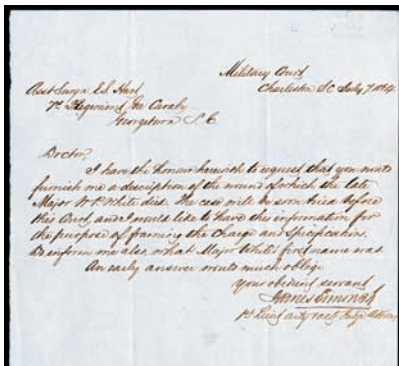 Military Court
Charleston SC July 7, 1864
Asst Surgn E.S. Hart
7th Regiment So Cavalry
Georgetown S.C
Doctor,
I have the honour herewith to request that you would
furnish me a description of the wound of which the late
Major W.P. White died. The case will be soon tried before
this Court, and I would like to have the information for
the purpose of framing the Charge and Specification.
Do inform me also, what Major White's first name was.
An early answer would much oblige
Your obedient servant
James Simons Jr
1st Lieut